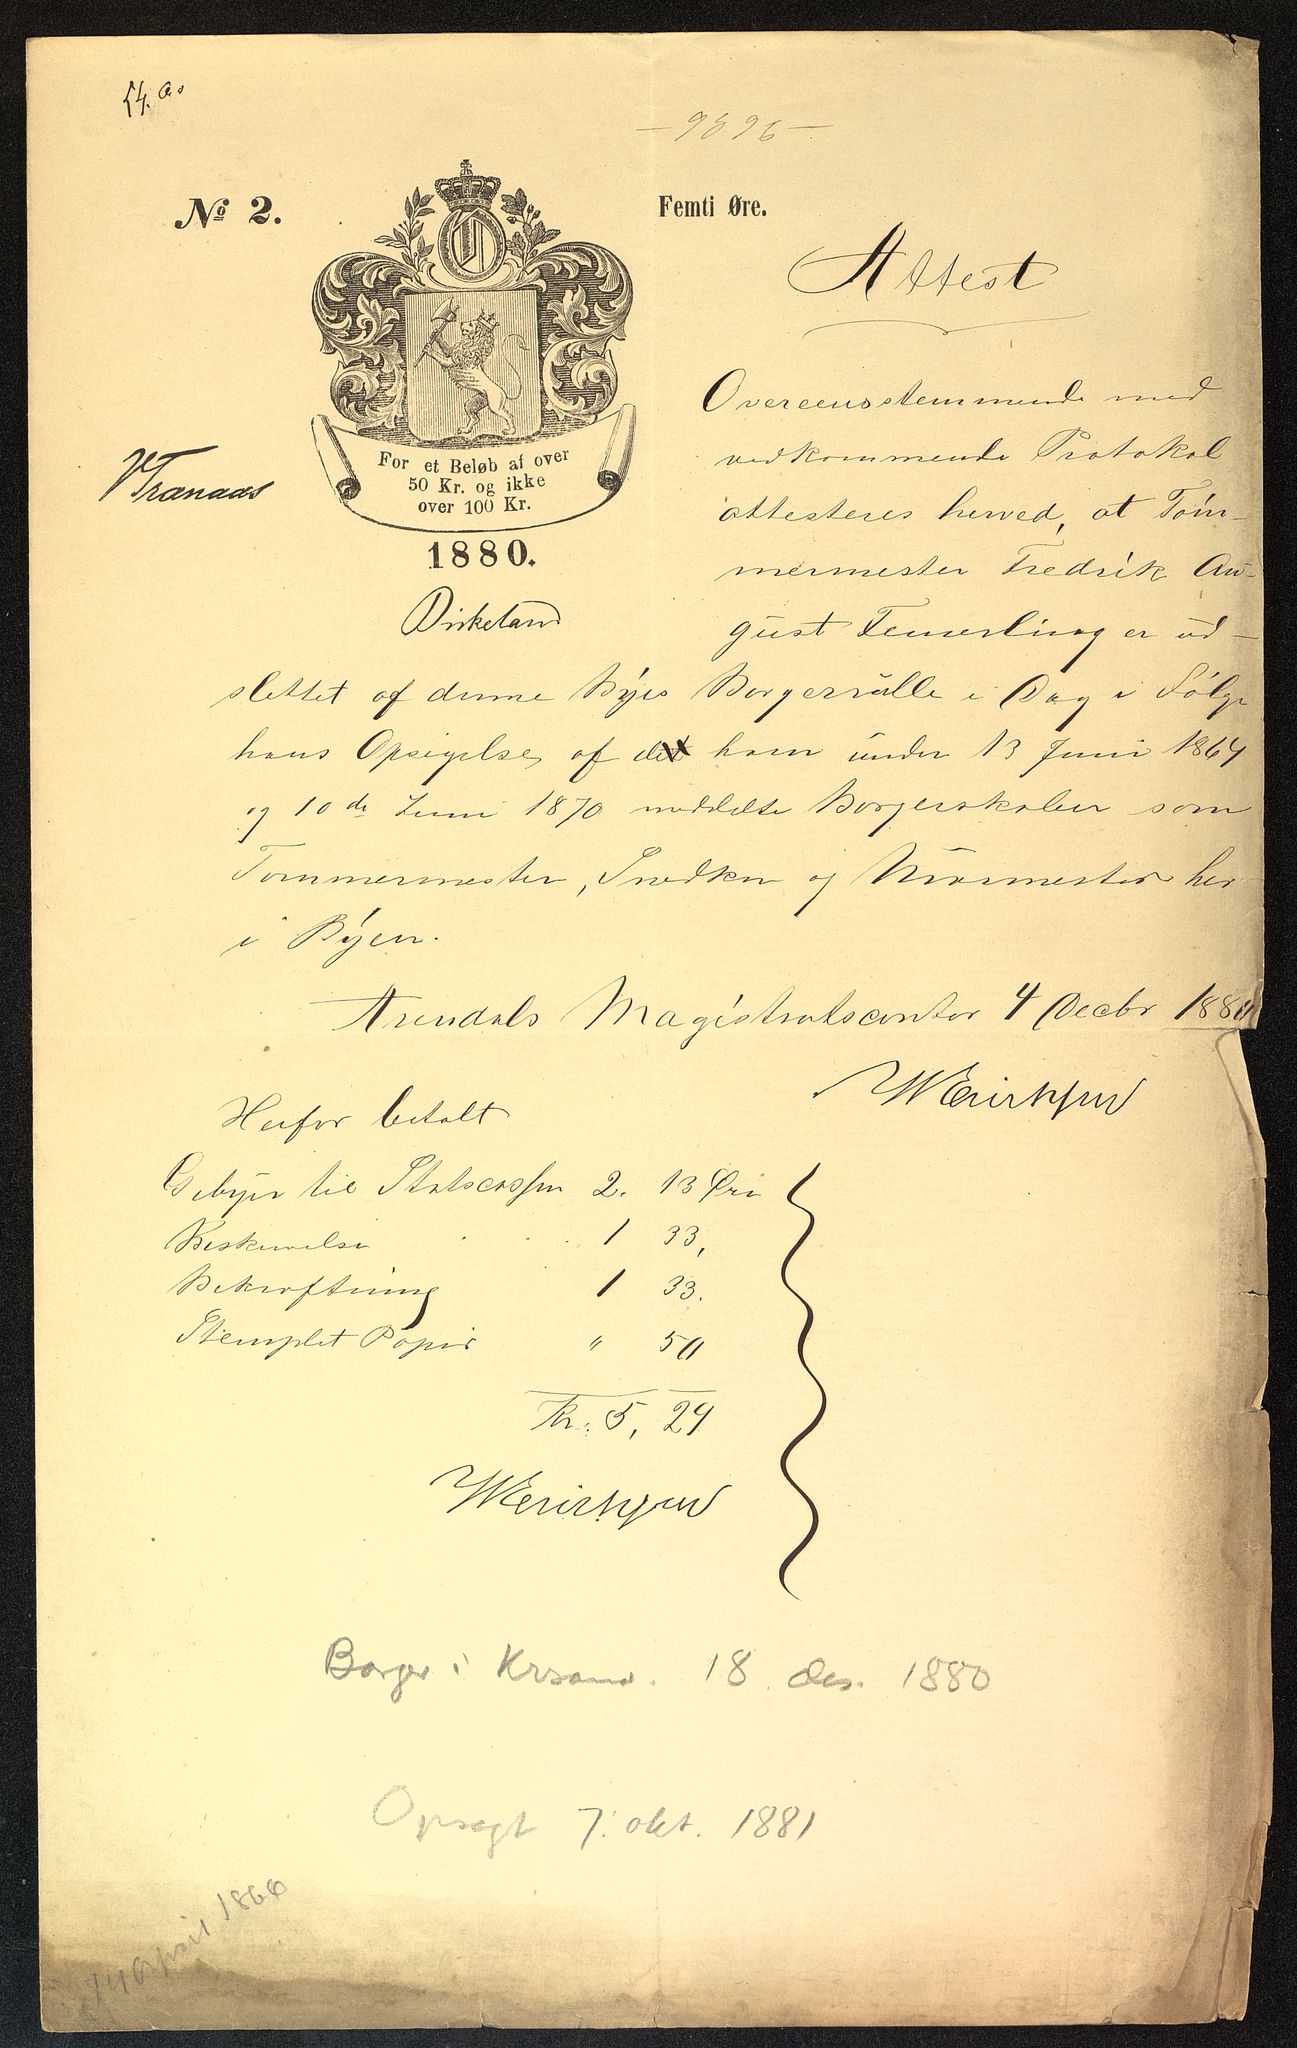 - 9896 -
No 2.
Femti Øre.
Attest
For et Beløb af over
50 Kr. og ikke
over 100 Kr.
VTranaas
1880.
Birkeland
Overeensstemmende med
vedkommende Protokol
attesteres herved, at Tøm-
mermester Fredrik Au-
gust Temerling er ud-
slettet af denne Byes Borgerrulle i Dag i Følge
hans Opsigelse af det ham under 13 Juni 1864
og 10de Juni 1870 meddelte Borgerskaber som
Tømmermester, Snedker og Murmester her
i Byen.
Arendals Magistratscontor 4 Decbr 1880
Herfor betalt
Gebyr til Statscassen 2. 13 Øre
Beskrivelse . . . 1 33,
Bekræftning 1 33.
Stemplet Papir " 50
Kr: 5, 29
Borger i Krsand. 18 des. 1880
Opsagt 7. okt. 1881
14 April 1866